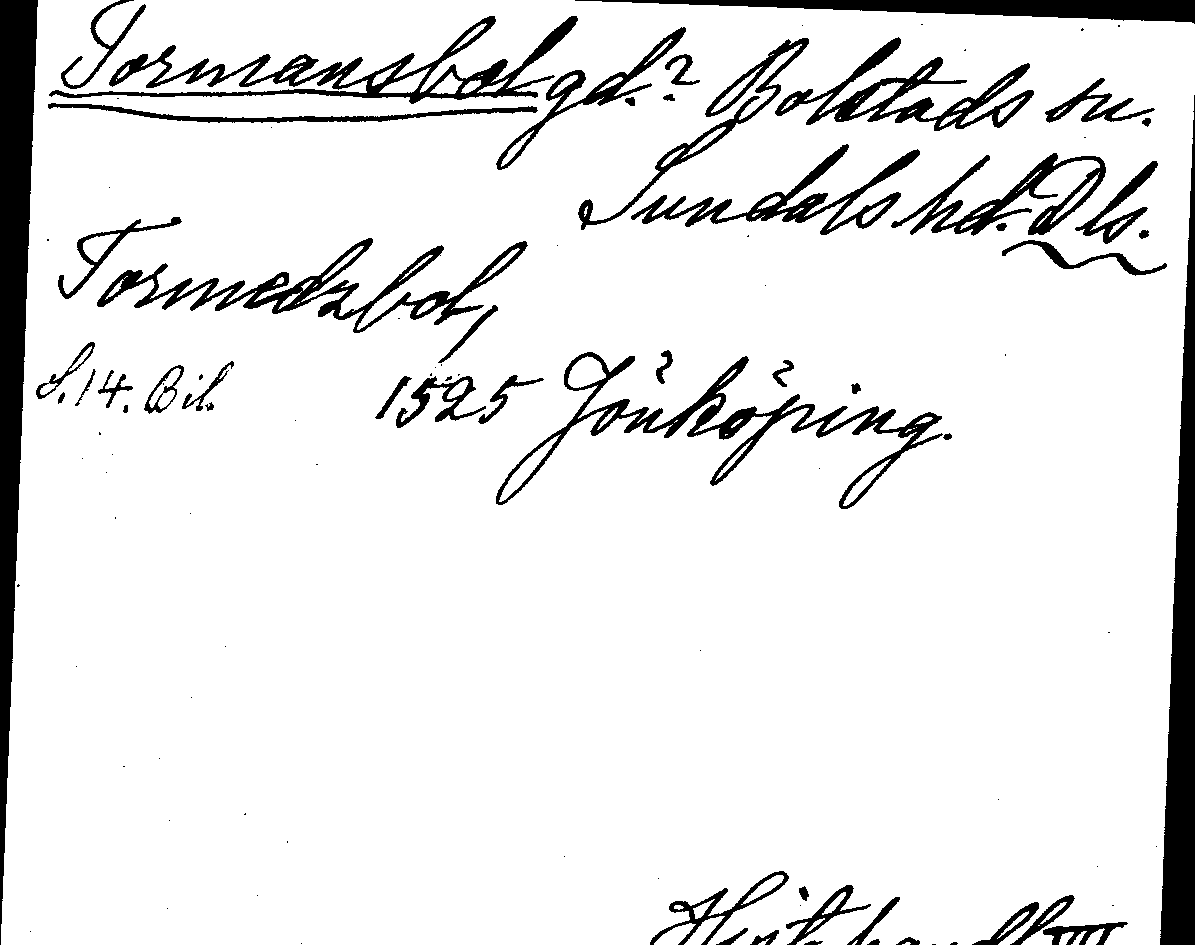 Tormansbol gd.? Bolstads sn.
Sundals hd. Dls.
Tormedzbol,
S. 14. Bil. 1525 Jönköping.
Hist. handl. VIII